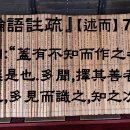 論語註疏』[述而]7
"蓋有不知而作之
是也. 多聞, 擇其善
, 多見而識之, 知之次